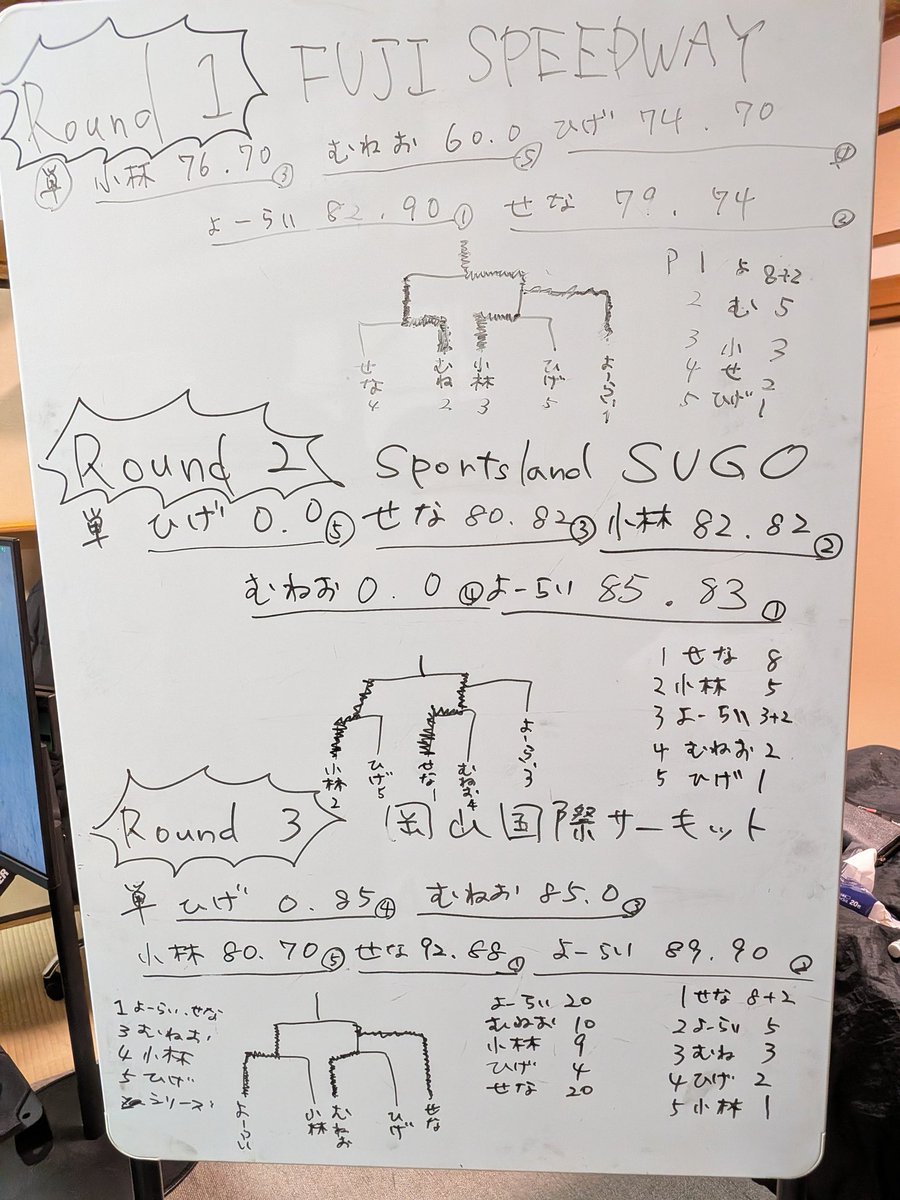 Round 1 FUJI SPEEDWAY
単 小林 76.70 ③ むねお 60.0 ⑤ ひげ 74.70 ④
よーらい 82.90 ① せな 79.74 ②
せな 4 むね 2 小林 3 ひげ 5 よーらい 1
P 1 よ 8+2
2 む 5
3 小 3
4 せ 2
5 ひげ 1
Round 2 Sportsland SUGO
単 ひげ 0.0 ⑤ せな 80.82 ③ 小林 82.82 ②
むねお 0.0 ④ よーらい 85.83 ①
小林 2 ひげ 5 せな 1 むねお 4 よーらい 3
1 せな 8
2 小林 5
3 よーらい 3+2
4 むねお 2
5 ひげ 1
Round 3 岡山国際サーキット
単 ひげ 0.85 ④ むねお 85.0 ③
小林 80.70 ⑤ せな 92.88 ① よーらい 89.90 ②
1 よーらい、せな
3 むねお
4 小林
5 ひげ
シリーズ
よーらい 小林 むねお ひげ せな
よーらい 20
むねお 10
小林 9
ひげ 4
せな 20
1 せな 8+2
2 よーらい 5
3 むね 3
4 ひげ 2
5 小林 1